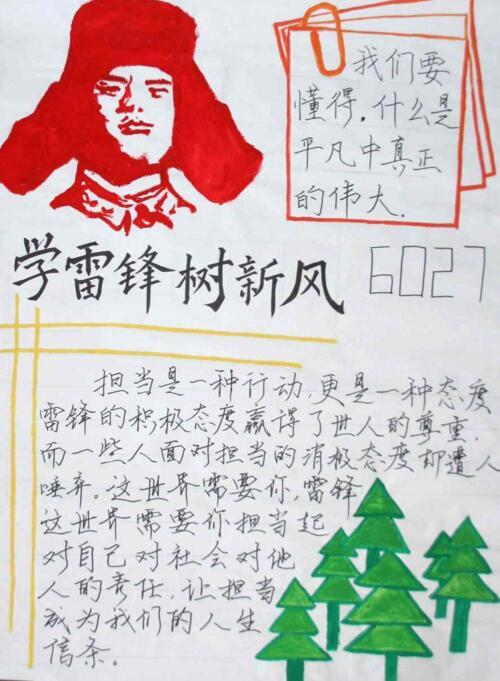 我们要
懂得,什么是
平凡中真正
的伟大.
学雷锋树新风
6027
担当是一种行动,更是一种态度
雷锋的积极态度赢得了世人的尊重,
而一些人面对担当的消极态度却遭人
唾弃。这世界需要你,雷锋
这世界需要你担当起
对自己对社会对他
人的责任,让担当
成为我们的人生
信条。